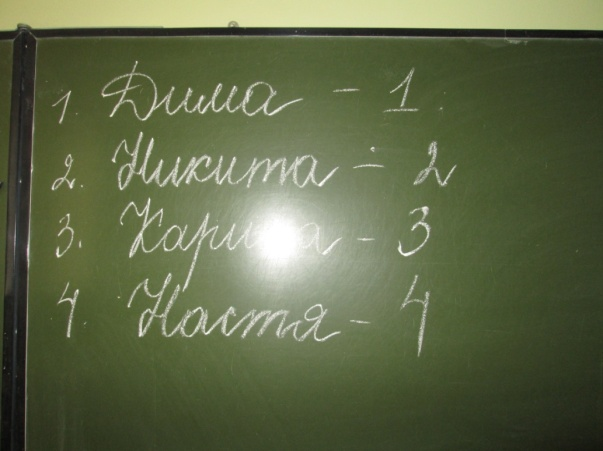 1. Дима - 1.
2. Никита - 2
3. Карина - 3
4. Настя - 4